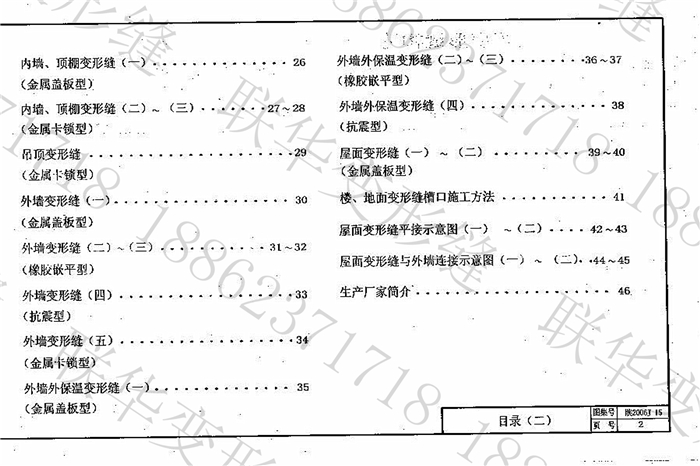 内墙、顶棚变形缝（一）················26
（金属盖板型）
内墙、顶棚变形缝（二）～（三）········27～28
（金属卡锁型）
吊顶变形缝 ····················29
（金属卡锁型）
外墙变形缝（一）················30
（金属盖板型）
外墙变形缝（二）～（三）··········31～32
（橡胶嵌平型）
外墙变形缝（四）················33
（抗震型）
外墙变形缝（五）················34
（金属卡锁型）
外墙外保温变形缝（一）············35
（金属盖板型）
外墙外保温变形缝（二）～（三）······36～37
（橡胶嵌平型）
外墙外保温变形缝（四）············38
（抗震型）
屋面变形缝（一）～（二）··········39～40
（金属盖板型）
楼、地面变形缝槽口施工方法 ··········41
屋面变形缝平接示意图（一）～（二）····42～43
屋面变形缝与外墙连接示意图（一）～（二）··44～45
生产厂家简介 ··················46
目录（二）
图集号 陕2006J 15
页 号 2
联华变形缝 18862371718